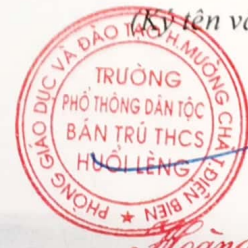 (Ký tên và
PHÒNG GIÁO DỤC VÀ ĐÀO TẠO H.MƯỜNG CHÀ T.ĐIỆN BIÊN ★
TRƯỜNG
PHỔ THÔNG DÂN TỘC
BÁN TRÚ THCS
HUỔI LÈNG
Hoàng